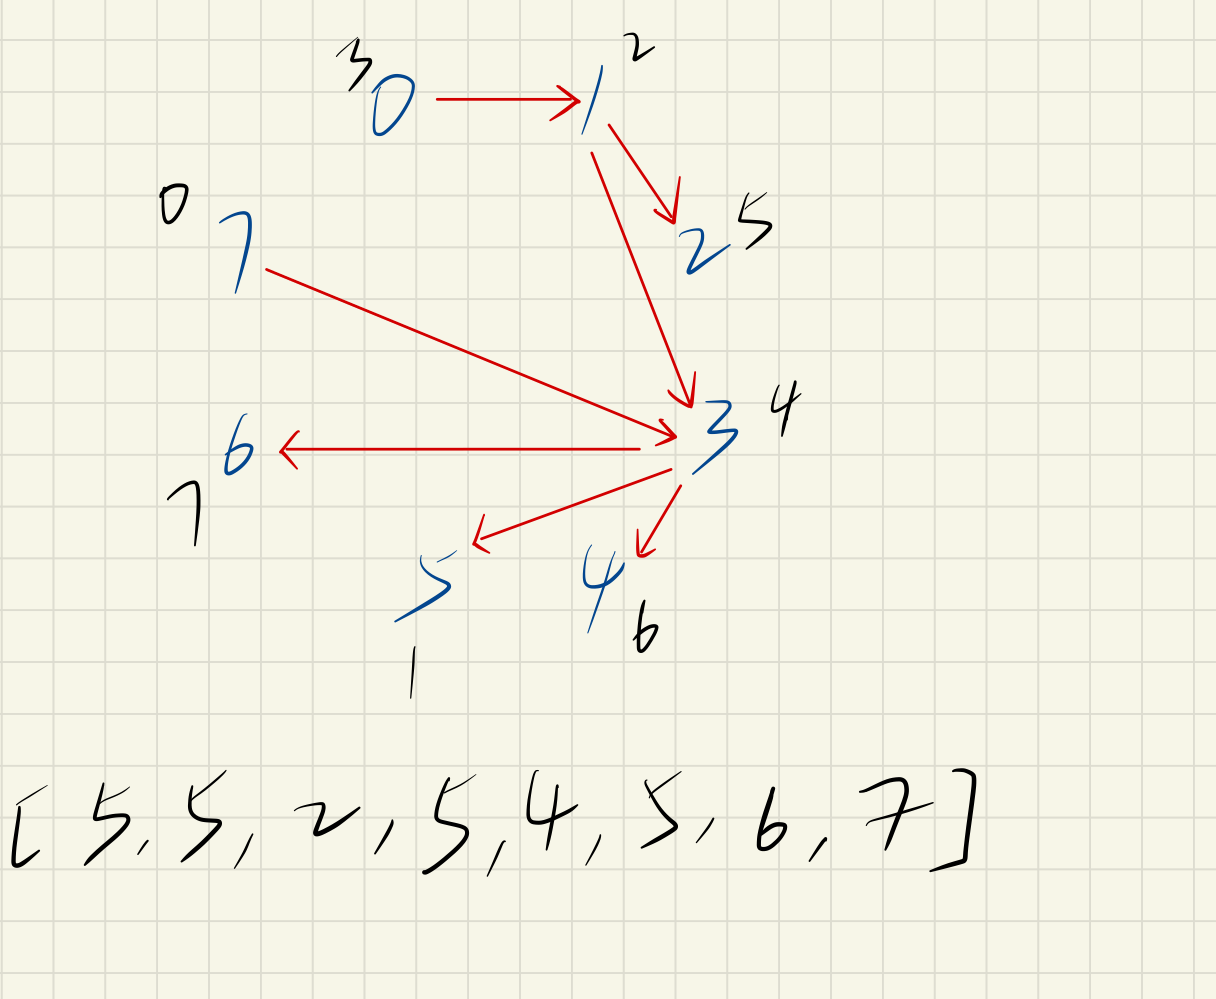 3 0 1 2
0 7 2 5
6 3 4
7
5 4
1 6
[5, 5, 2, 5, 4, 5, 6, 7]